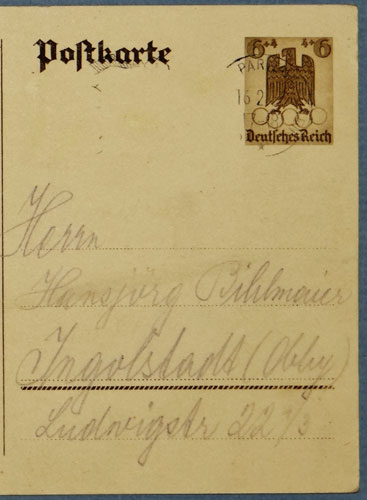 Postkarte
6+4 4+6
PAR
16.2
Deutsches Reich
Herrn
Hansjörg Bihlmaier
Ingolstadt (Obby)
Ludwigstr 22 1/3